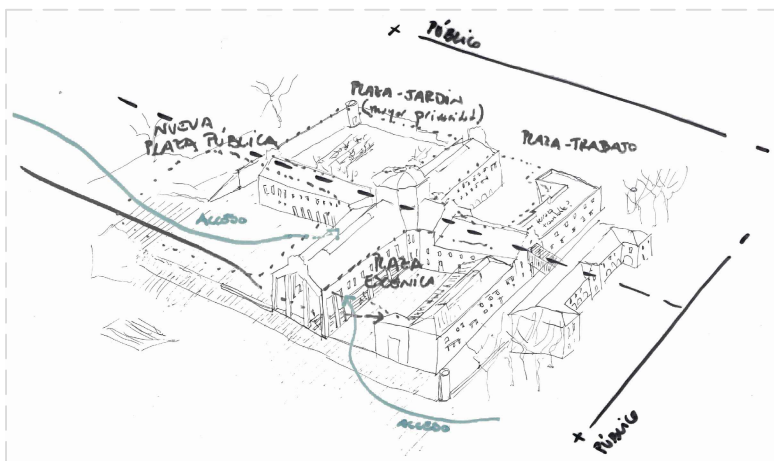 + PÚBLICO
PLAZA-JARDÍN
(mayor privacidad)
NUEVA
PLAZA PÚBLICA
PLAZA-TRABAJO
ACCESO
PLAZA
ESCÉNICA
ACCESO
+ PÚBLICO